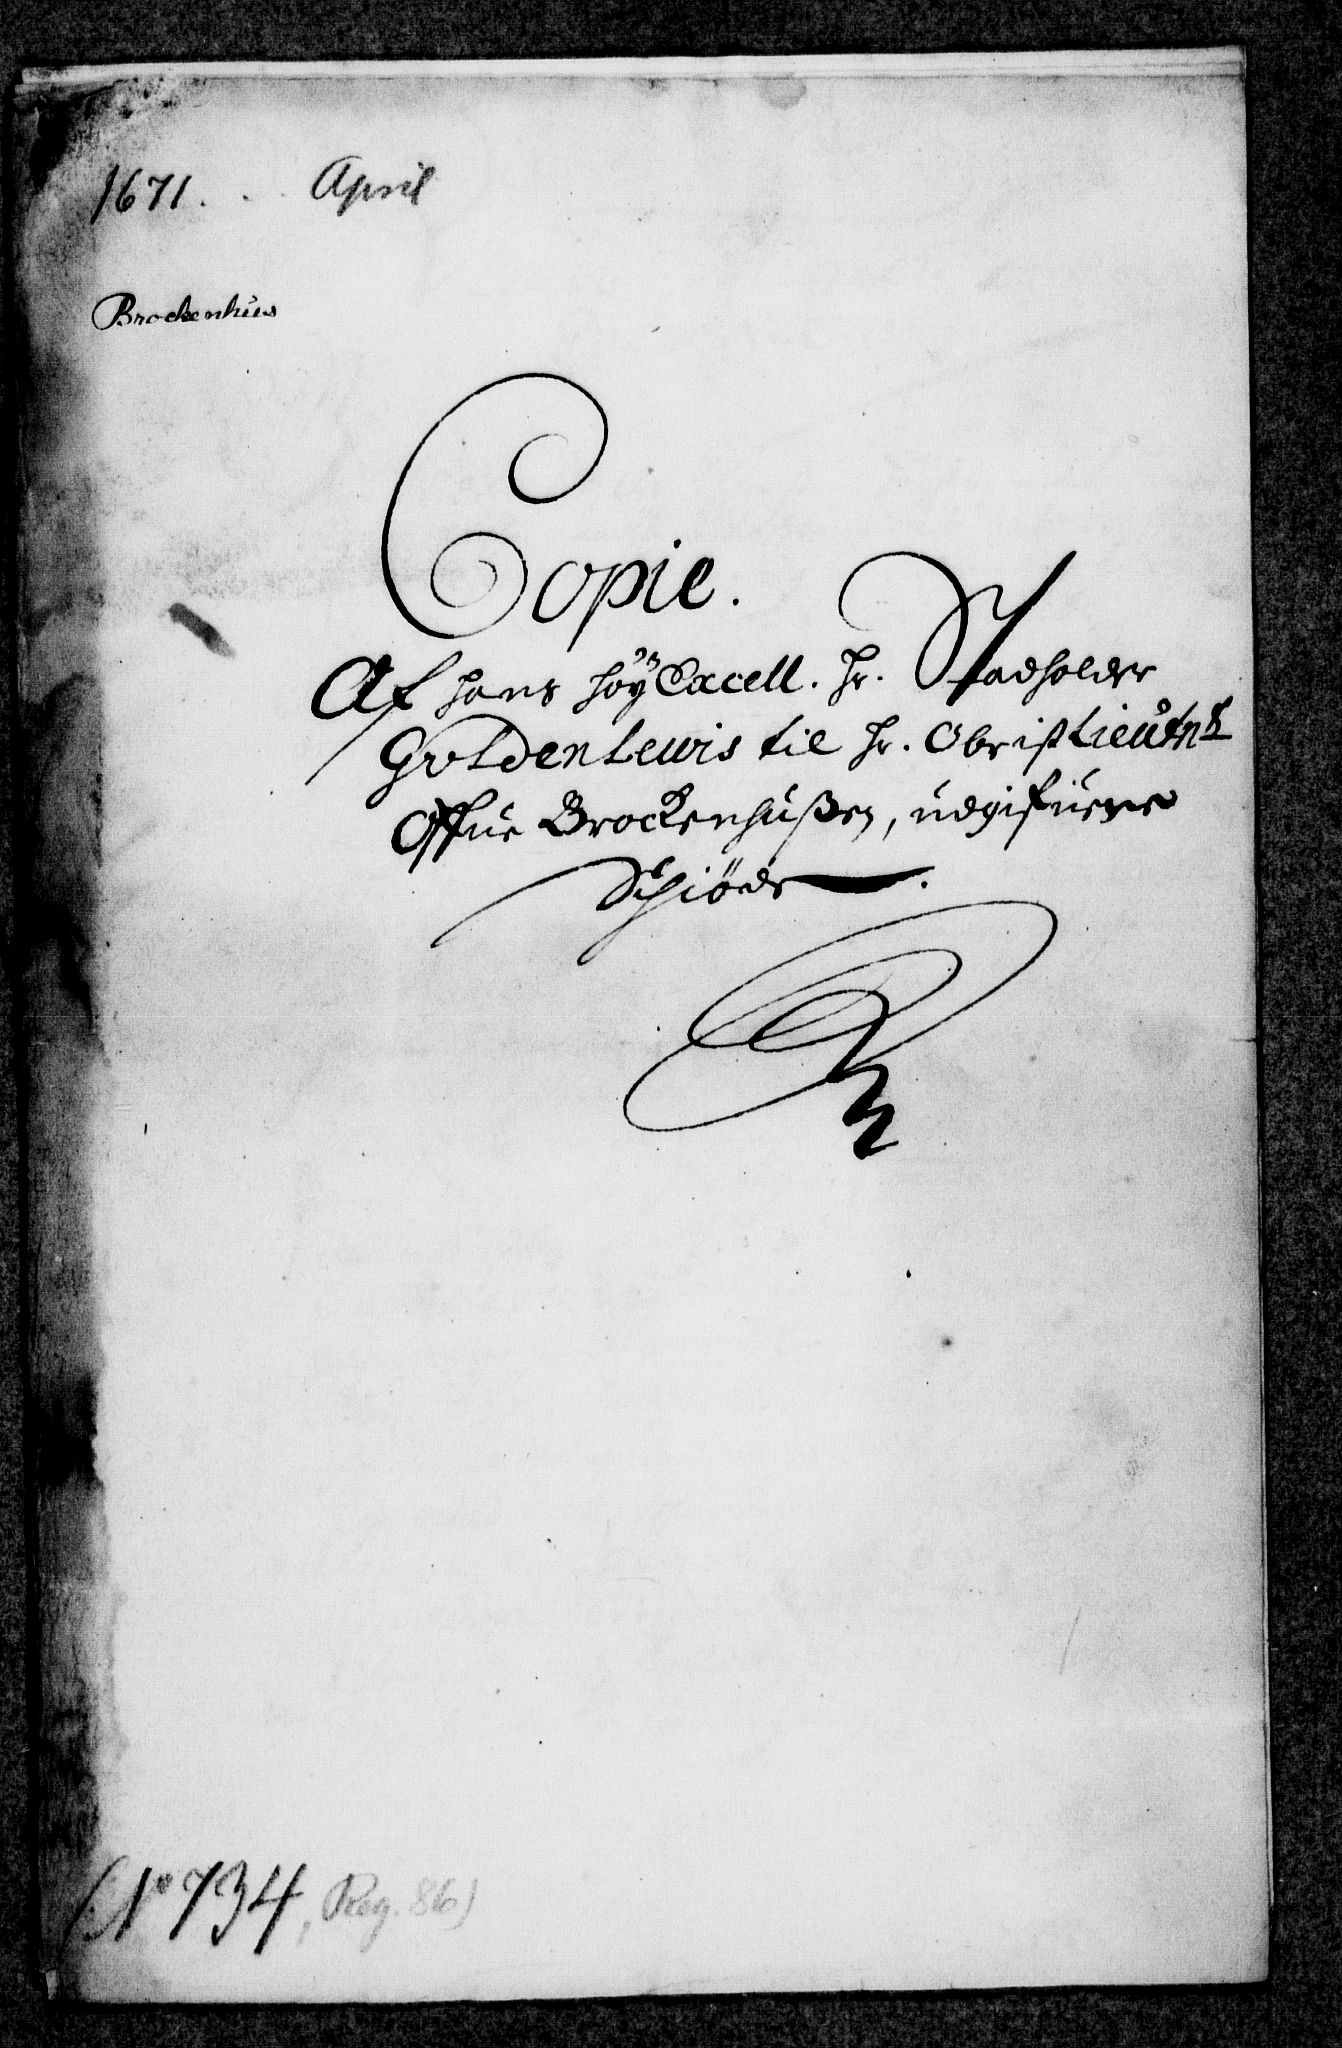 1671. . . April
Brockenhüs
Copie.
Af hans höyExcell. Hr. Stadholder
Gyldenlewis til Hr. Obristlieutnt
Offue Brockenhußen, udgifuene
Schiöde.
(No 734, Reg. 86)